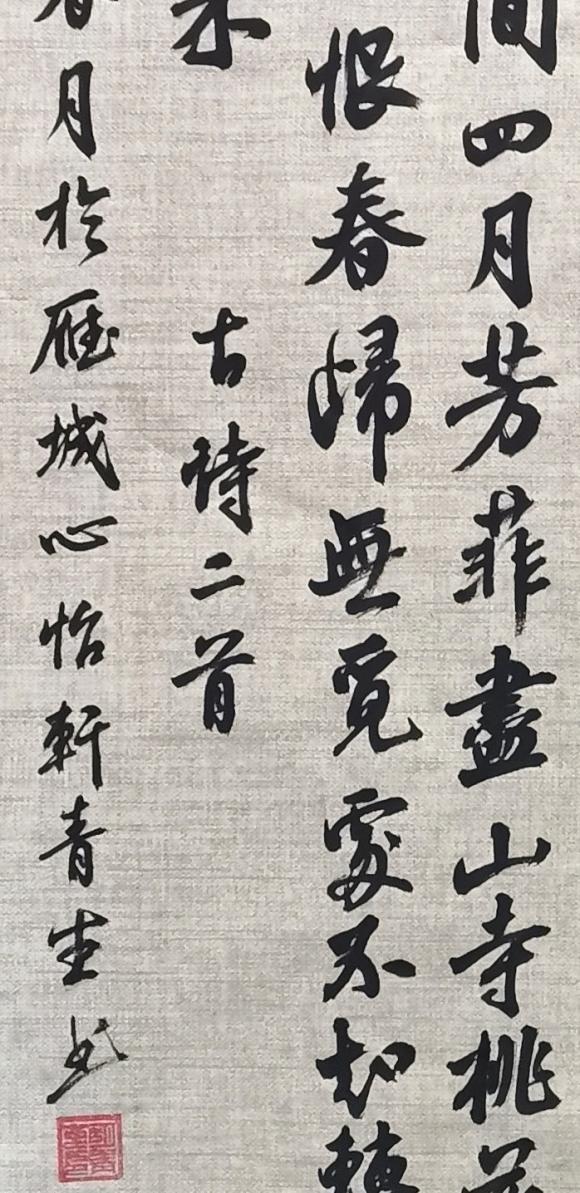 間四月芳菲盡山寺桃
恨春歸無覓處不知轉
古詩二首
春月於雁城心怡軒青生書